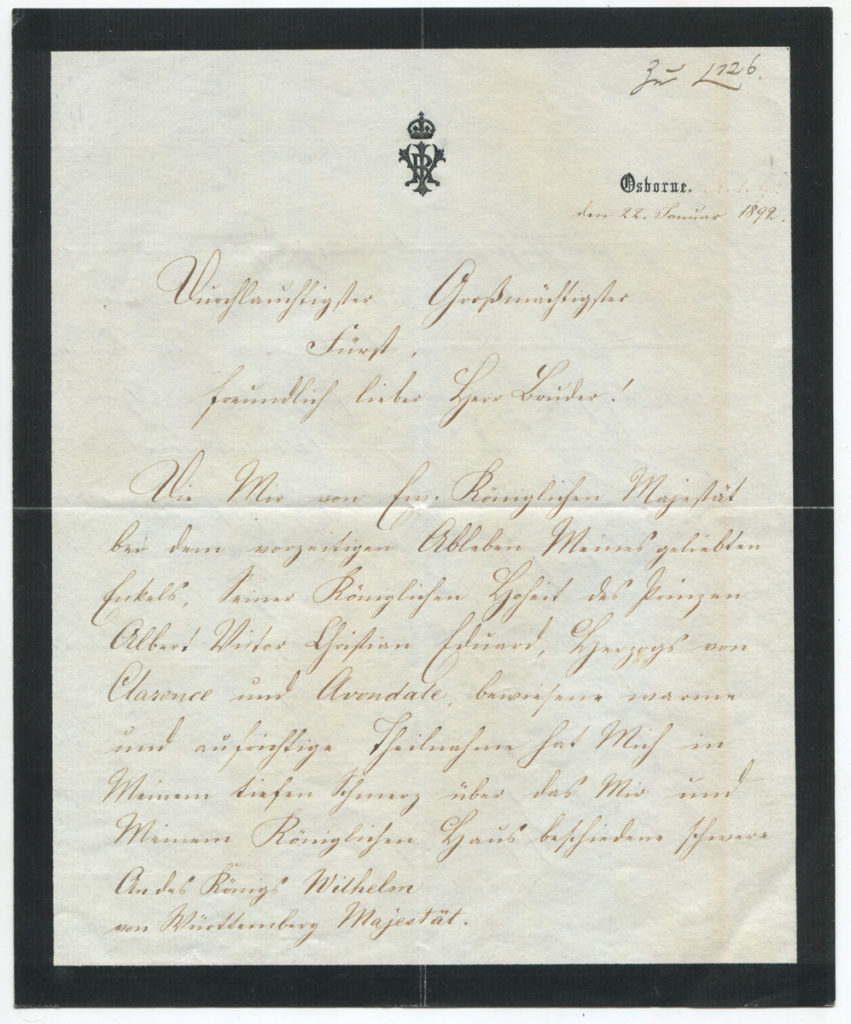 Zu 1726.
Osborne.
den 22. Januar 1892.
Durchlauchtigster Großmächtigster
Fürst,
freundlich lieber Herr Bruder!
Die Mir von Ew. Königlichen Majestät
bei dem vorzeitigen Ableben Meines geliebten
Enkels, Seiner Königlichen Hoheit des Prinzen
Albert Victor Christian Eduard, Herzogs von
Clarence und Avondale, bewiesene warme
und aufrichtige Theilnahme hat Mich in
Meinem tiefen Schmerz über das Mir und
Meinem Königlichen Haus beschiedene schwere
An des Königs Wilhelm
von Württemberg Majestät.